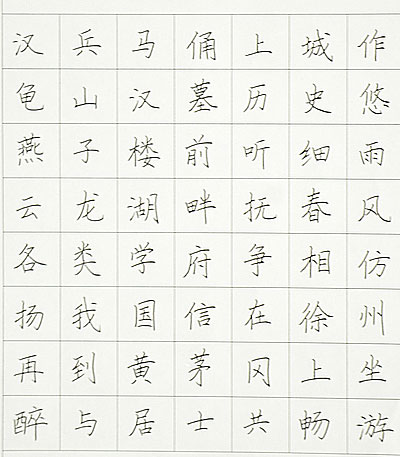 汉兵马俑上城作
龟山汉墓历史悠
燕子楼前听细雨
云龙湖畔抚春风
各类学府争相仿
扬我国信在徐州
再到黄茅冈上坐
醉与居士共畅游